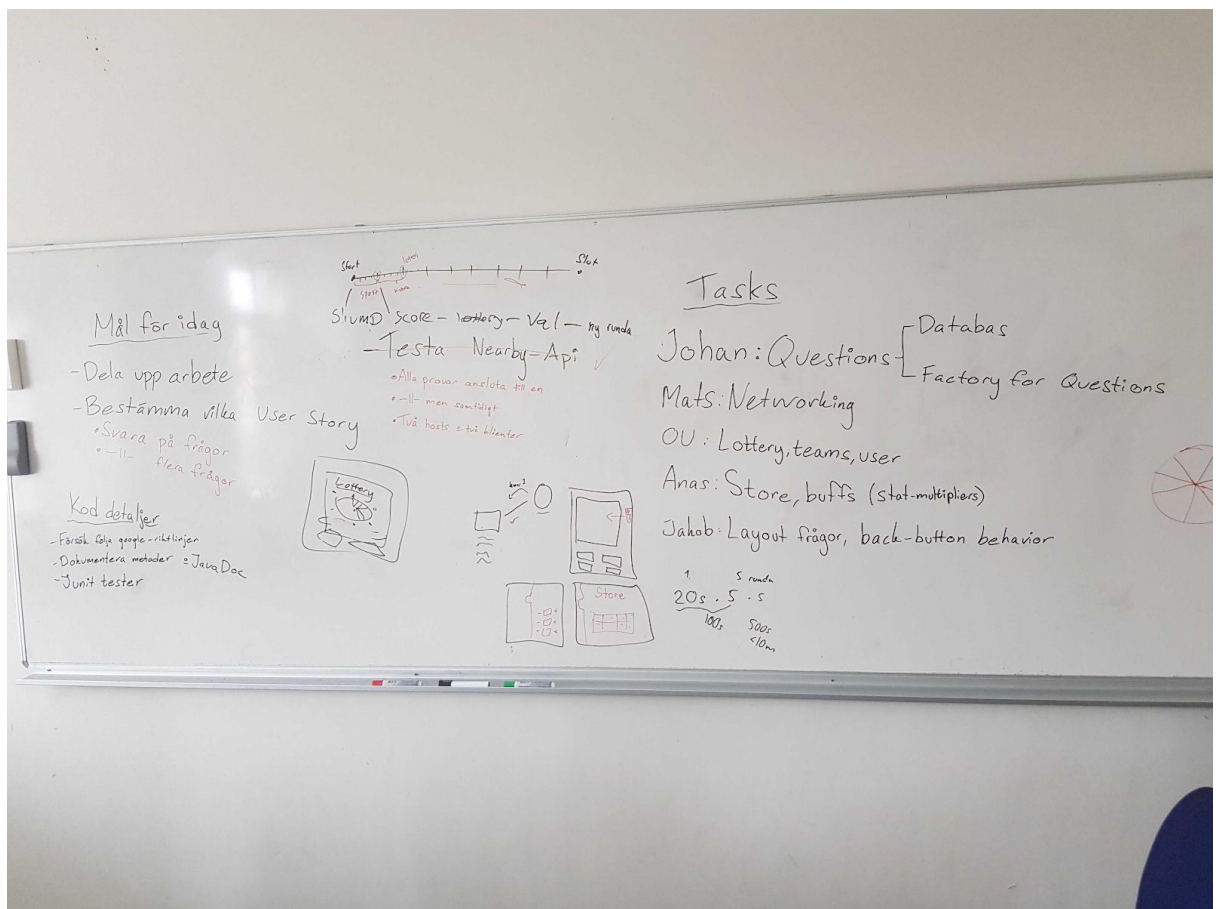 Mål för idag
- Dela upp arbete
- Bestämma vilka User Story
• Svara på frågor
• -||- flera frågor
Kod detaljer
- Försök följa google-riktlinjer
- Dokumentera metoder : JavaDoc
- Junit tester
Start
Slut
Store
score - lottery - Val - ny runda
- Testa Nearby-Api
• Alla provar ansluta till en
• -||- men samtidigt
• Två hosts två klienter
Lottery
Store
Tasks
Johan: Questions
Databas
Factory for Questions
Mats: Networking
OU: Lottery, teams, user
Anas: Store, buffs (stat-multipliers)
Jakob: Layout frågor, back-button behavior
1 5 runda
20s . 5 . 5
100s 500s
<10m